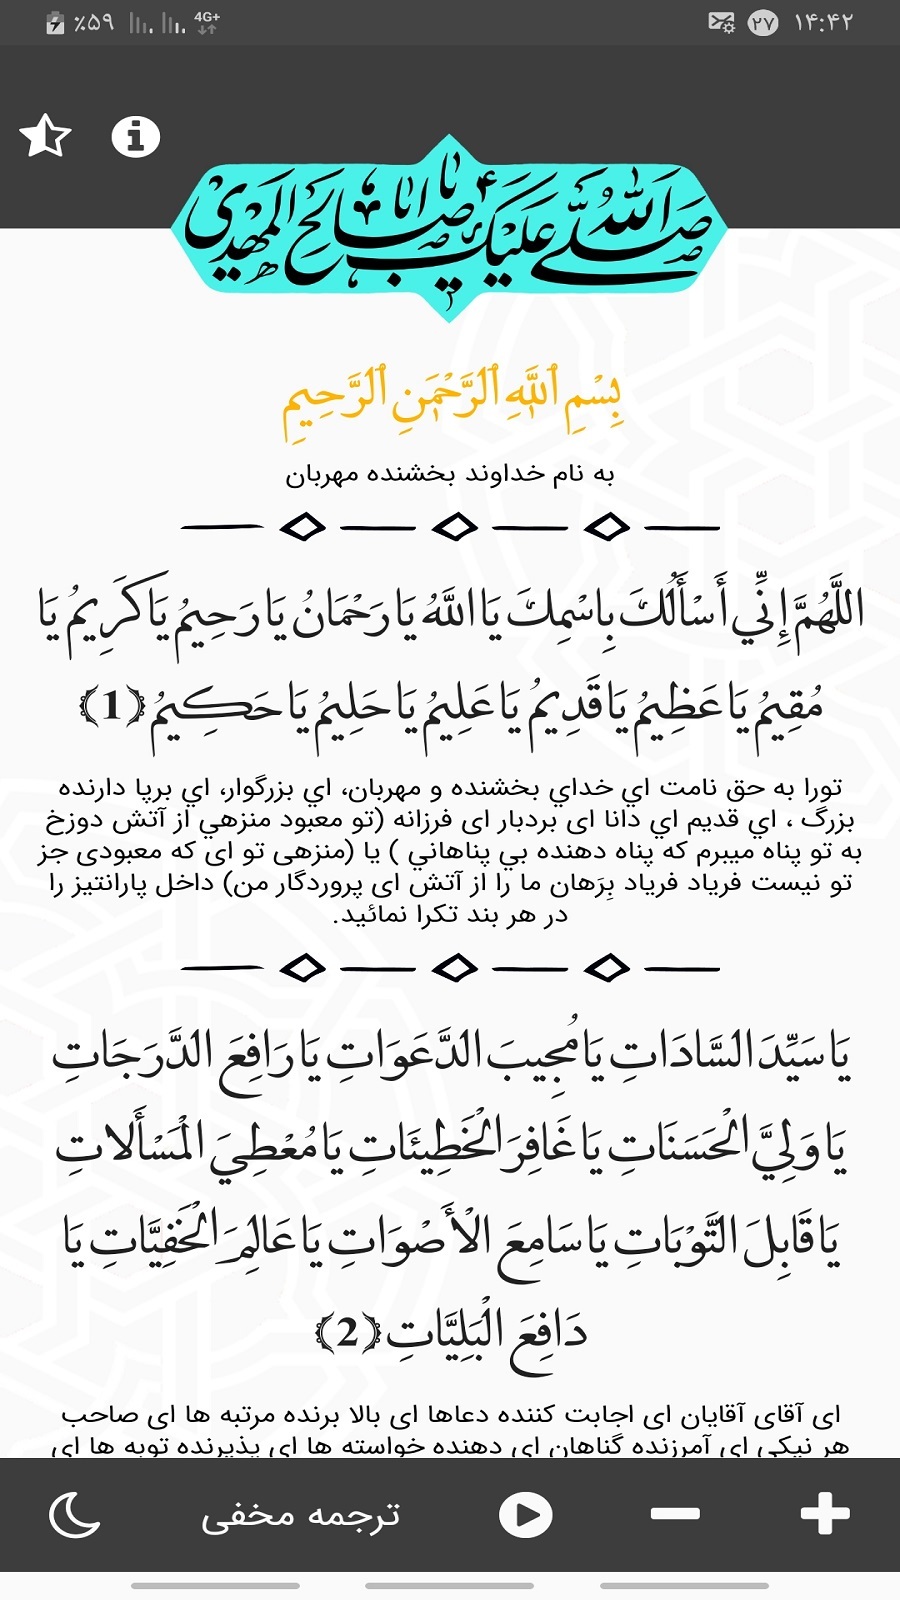 ۱۴:۴۲
۲۷
4G+
٪۵۹
صلی الله علیک یا ابا صالح المهدی
بِسْمِ ٱللَّهِ ٱلرَّحْمَٰنِ ٱلرَّحِيمِ
به نام خداوند بخشنده مهربان
اللَّهُمَّ إِنِّي أَسْأَلُكَ بِاسْمِكَ يَا اللَّهُ يَا رَحْمَانُ يَا رَحِيمُ يَا كَرِيمُ يَا
مُقِيمُ يَا عَظِيمُ يَا قَدِيمُ يَا عَلِيمُ يَا حَلِيمُ يَا حَكِيمُ ﴿1﴾
تورا به حق نامت اي خداي بخشنده و مهربان، اي بزرگوار، اي برپا دارنده
بزرگ ، اي قديم اي دانا ای بردبار ای فرزانه (تو معبود منزهي از آتش دوزخ
به تو پناه میبرم که پناه دهنده بي پناهاني ) یا (منزهی تو ای که معبودی جز
تو نیست فریاد فریاد بِرَهان ما را از آتش ای پروردگار من) داخل پارانتیز را
در هر بند تکرا نمائید.
يَا سَيِّدَ السَّادَاتِ يَا مُجِيبَ الدَّعَوَاتِ يَا رَافِعَ الدَّرَجَاتِ
يَا وَلِيَّ الْحَسَنَاتِ يَا غَافِرَ الْخَطِيئَاتِ يَا مُعْطِيَ الْمَسْأَلاتِ
يَا قَابِلَ التَّوْبَاتِ يَا سَامِعَ الْأَصْوَاتِ يَا عَالِمَ الْخَفِيَّاتِ يَا
دَافِعَ الْبَلِيَّاتِ ﴿2﴾
ای آقای آقایان ای اجابت کننده دعاها ای بالا برنده مرتبه ها ای صاحب
هر نیکی ای آمرزنده گناهان ای دهنده خواسته ها ای پذیرنده توبه ها ای
ترجمه مخفی